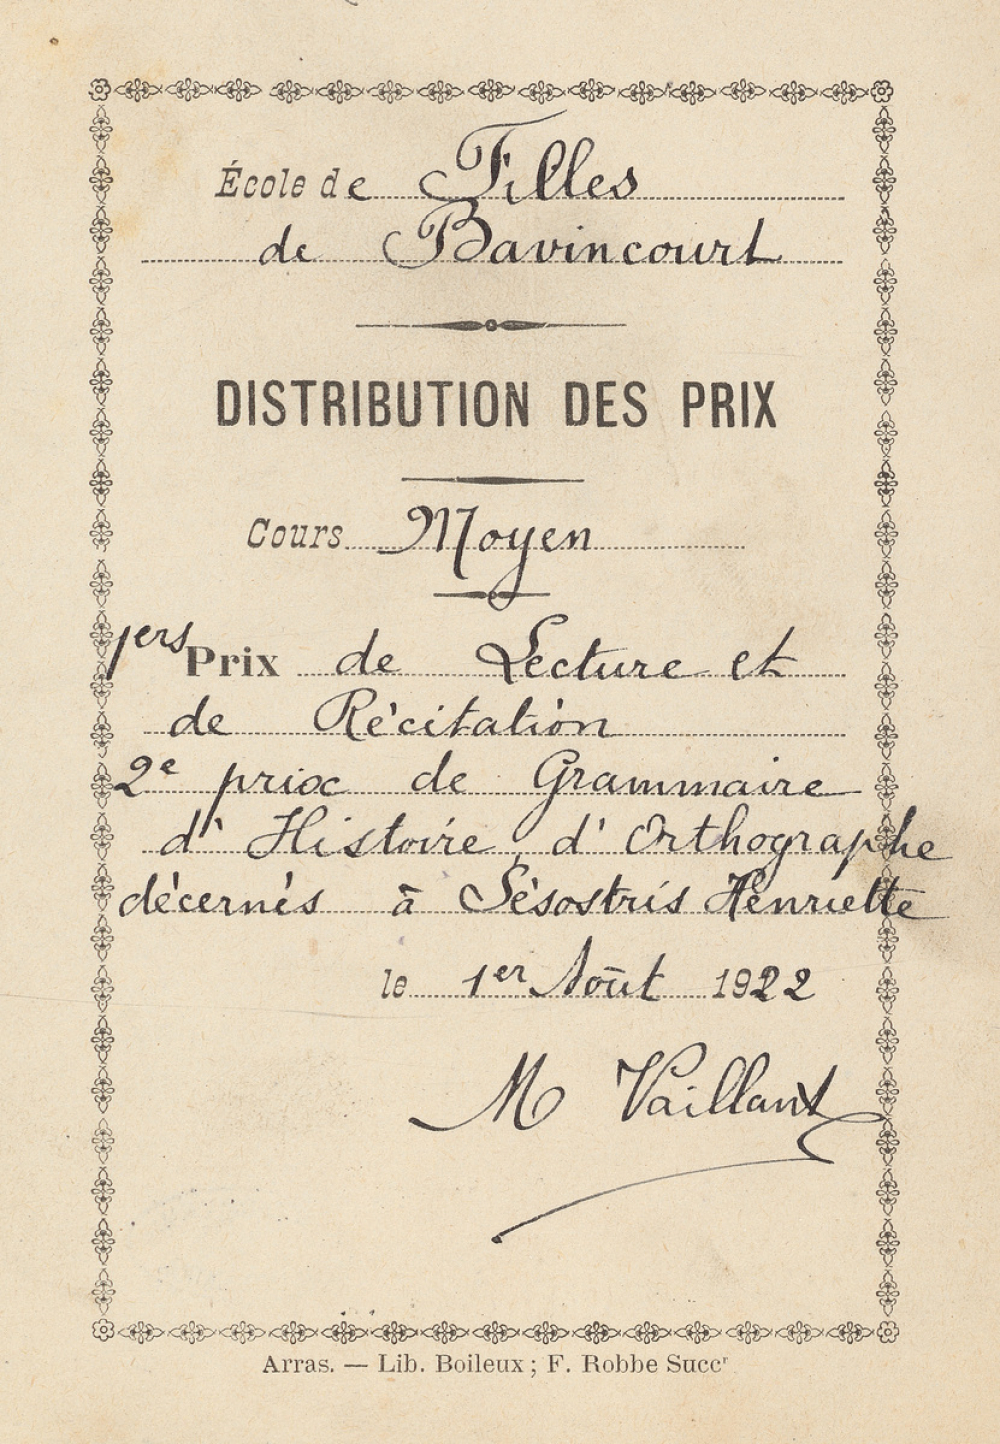 École de Filles
de Bavincourt
DISTRIBUTION DES PRIX
Cours Moyen
1ers Prix de Lecture et
de Récitation
2e prix de Grammaire
d'Histoire, d'Orthographe
décernés à Sésostris Henriette
le 1er Août 1922
M Vaillant
Arras. — Lib. Boileux ; F. Robbe Succr